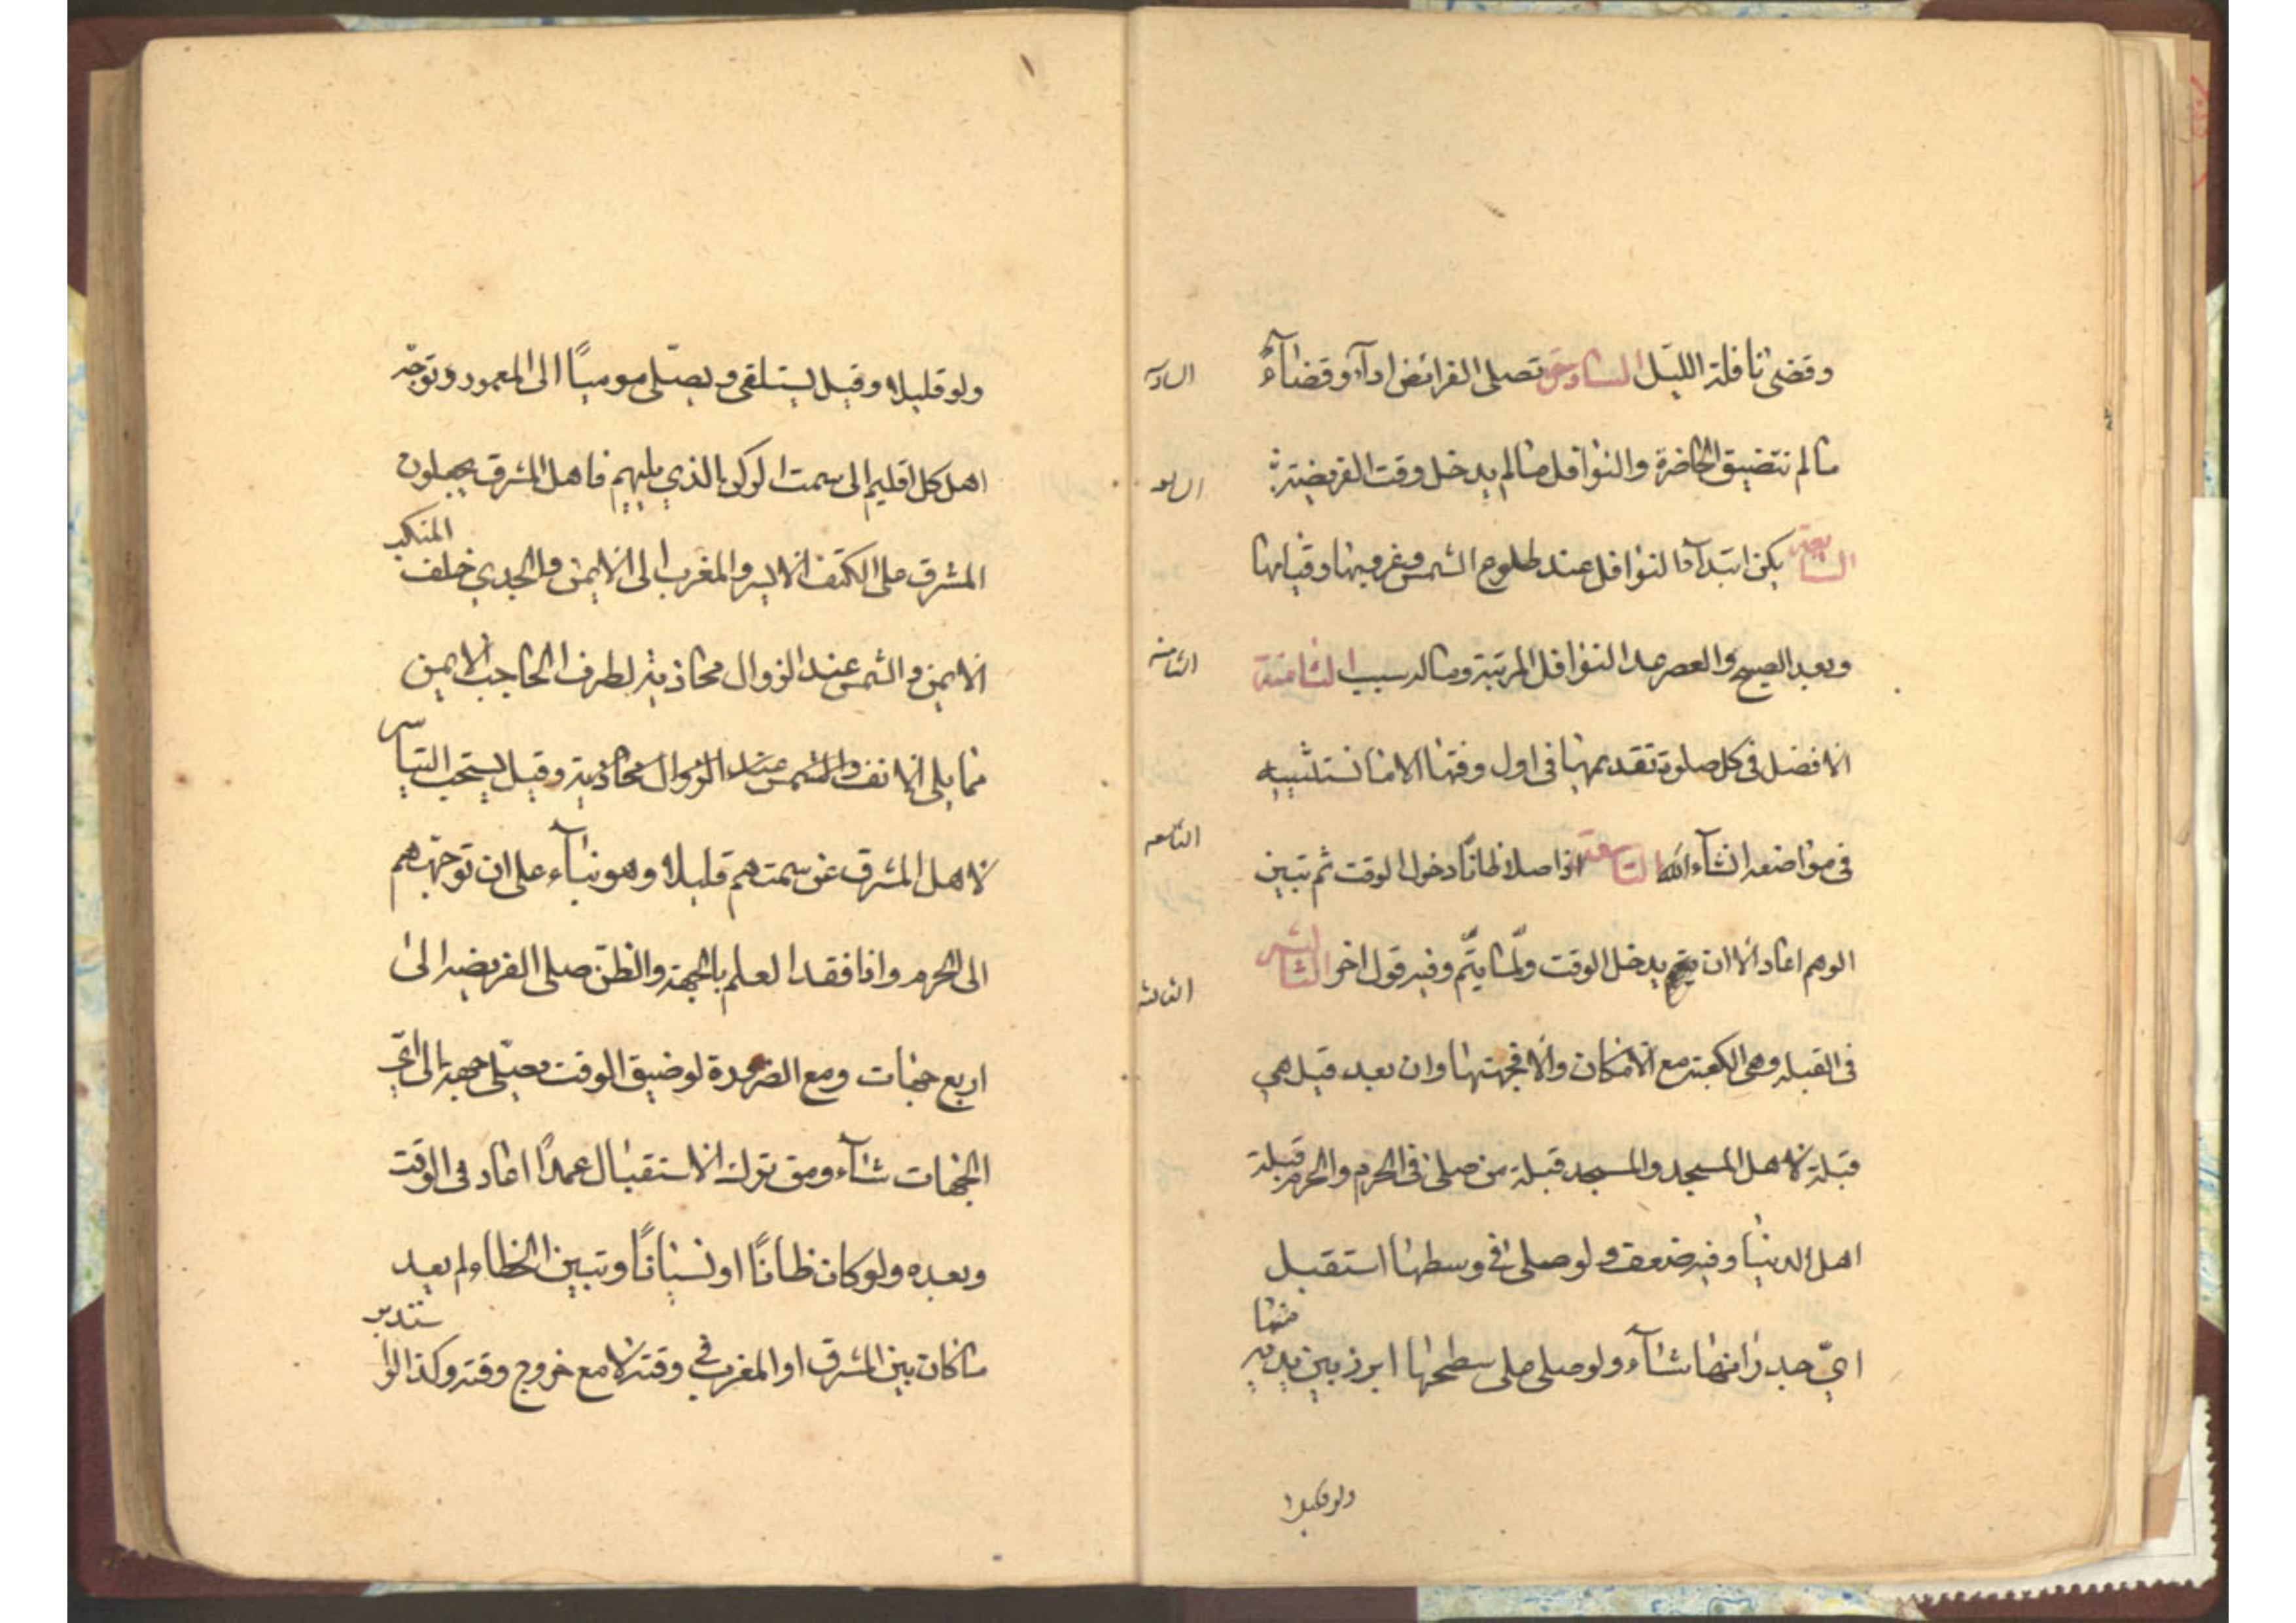 وقضى نافلة الليل السادسة تصلى الفرائض ادآء وقضآءً
السادسة
ما لم تتضيق الحاضرة والنوافل ما لم يدخل وقت الفريضة
السابعة يكره ابتدآء النوافل عند طلوع الشمس وغروبها وقيامها
وبعد الصبح والعصر عدا النوافل المرتبة وما له سبب الثامنة
الثامنة
الافضل في كل صلوة تقديمها في اول وقتها الا ما نستثنيه
في مواضعه انشآء الله التاسعة اذا صلا ظانًا دخول الوقت ثم تبين
التاسعه
الوهم اعاد الا ان يدخل الوقت ولمّا يتمّ وفيه قول اخر الثالث
الثالثه
في القبله وهي الكعبة مع الامكان والا فجهتها وان بعد قيل هي
قبلة لاهل المسجد والمسجد قبلة من صلى في الحرم والحرم قبلة
اهل الدنيا وفيه ضعف ولو صلى في وسطها استقبل
اي جدرانها شآء ولو صلى على سطحها ابرز بين يديه
منها
ولو قليلا
ولو قليلا وقيل يستلقى ويصلّى موميًا الى المعمور وتوجّه
اهل كل اقليم الى سمت الركن الذي يليهم فاهل المشرق يجعلون
المشرق على الكتف الايسر والمغرب الى الايمن والجدي خلف
المنكب
الايمن والشمس عند الزوال محاذية لطرف الحاجب الايمن
مما يلى الانف والشمس عند الزوال محاذية وقيل يستحب التياسر
لاهل المشرق عن سمتهم قليلا وهو بنآء على ان توجههم
الى الحرم واذا فقد العلم بالجهة والظن صلى الفريضه الى
اربع جهات ومع الضرورة لو ضيق الوقت يصلّى جهة الى ايّ
الجهات شآء ومن ترك الاستقبال عمدًا اعاد في الوقت
وبعده ولو كان ظانًا او نسيانًا وتبين الخطاء لم يعد
ما كان بين المشرق او المغرب في وقته لا مع خروج وقته وكذا لو
ستدبر